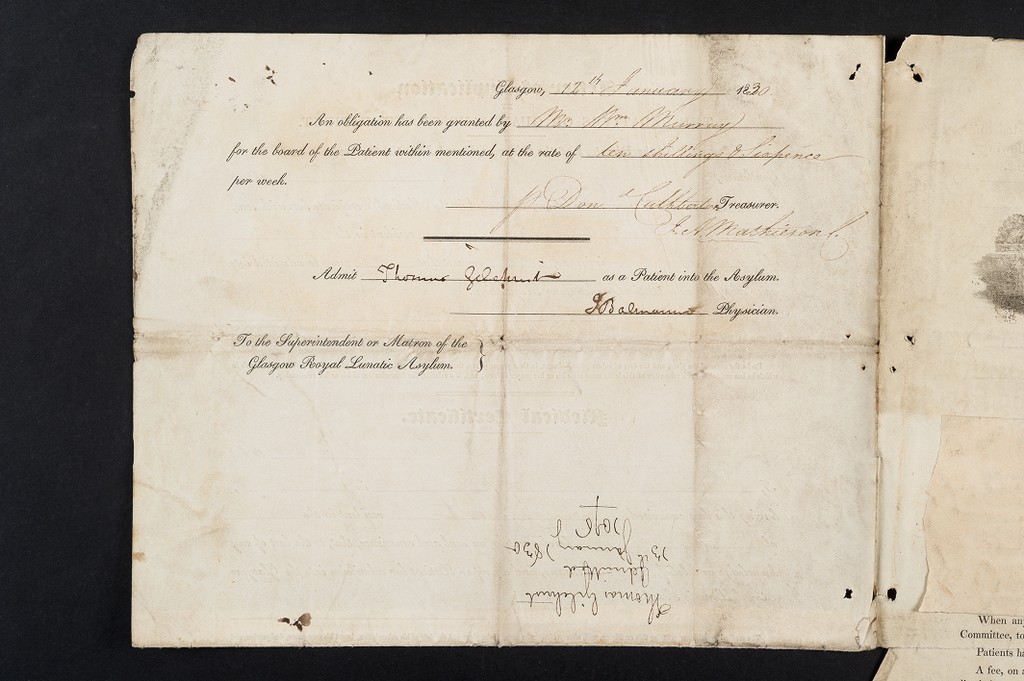 Glasgow, 12th January 1830
An obligation has been granted by Mr. Wm Murray
for the board of the Patient within mentioned, at the rate of ten shillings & Sixpence
per week.
pr Don d Cuthbertson Treasurer.
J. A. Mathieson
Admit Thomas Gilchrist as a Patient into the Asylum.
J Balmanno Physician.
To the Superintendent or Matron of the
Glasgow Royal Lunatic Asylum.
Thomas Gilchrist
Admitted
13th January 1830
When any
Committee, to
Patients ha
A fee, on a